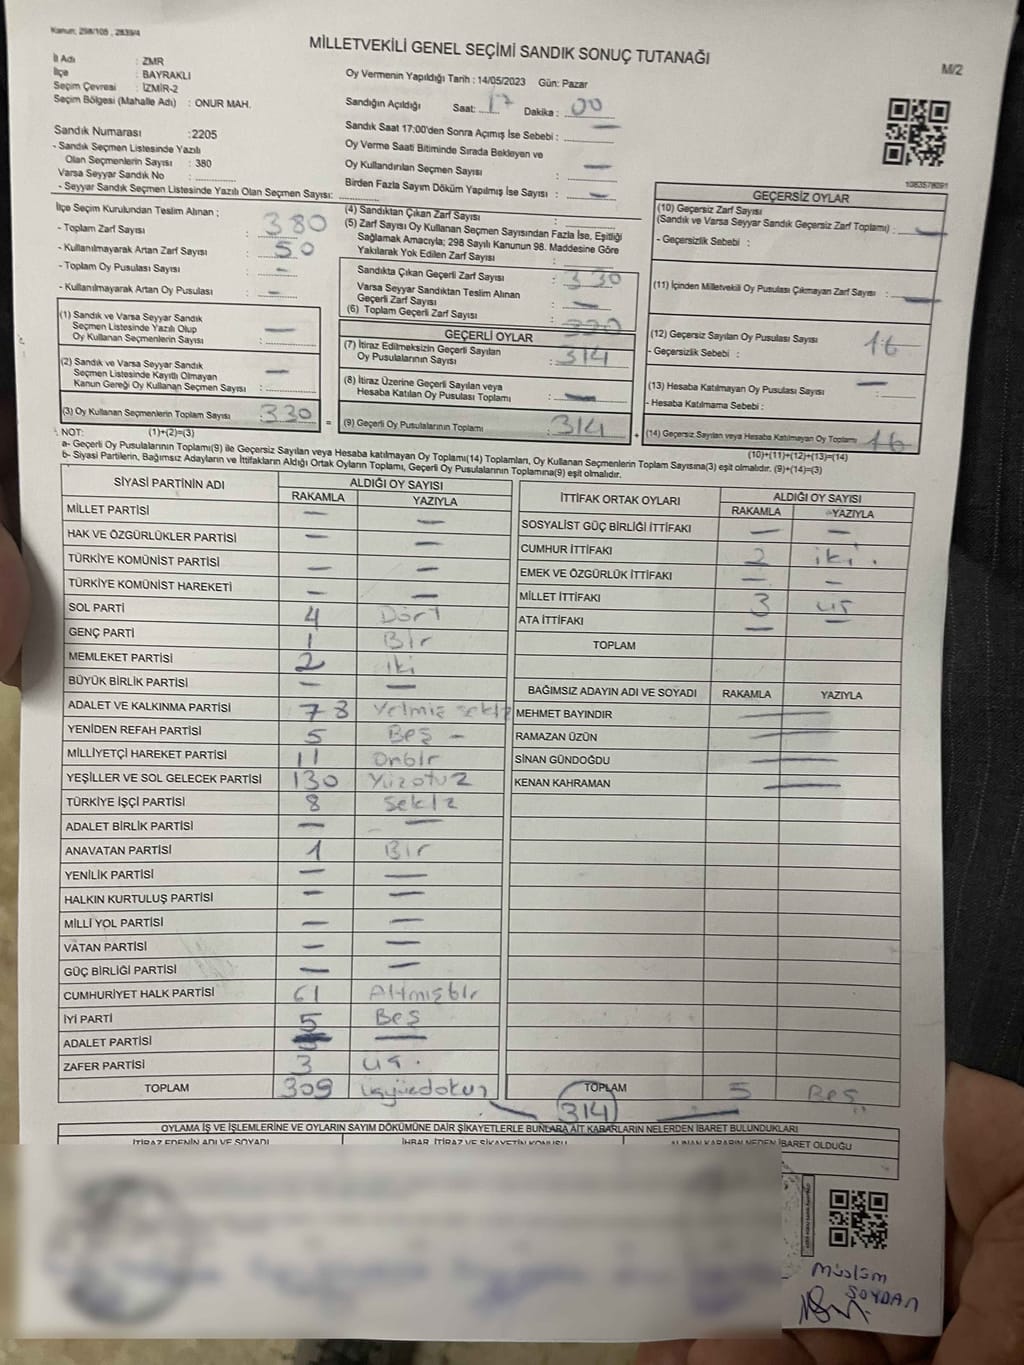 Kanun, 298/105 , 2839/4
MİLLETVEKİLİ GENEL SEÇİMİ SANDIK SONUÇ TUTANAĞI
M/2
İl Adı : ZMR
İlçe : BAYRAKLI
Seçim Çevresi : İZMİR-2
Seçim Bölgesi (Mahalle Adı) : ONUR MAH.
Sandık Numarası :2205
- Sandık Seçmen Listesinde Yazılı
Olan Seçmenlerin Sayısı : 380
Varsa Seyyar Sandık No :
- Seyyar Sandık Seçmen Listesinde Yazılı Olan Seçmen Sayısı:
Oy Vermenin Yapıldığı Tarih : 14/05/2023 Gün: Pazar
Sandığın Açıldığı Saat: 17 Dakika : 00
Sandık Saat 17:00'den Sonra Açımış İse Sebebi : —
Oy Verme Saati Bitiminde Sırada Bekleyen ve
Oy Kullandırılan Seçmen Sayısı : —
Birden Fazla Sayım Döküm Yapılmış İse Sayısı : —
1083578091
İlçe Seçim Kurulundan Teslim Alınan ;
- Toplam Zarf Sayısı : 380
- Kullanılmayarak Artan Zarf Sayısı : 50
- Toplam Oy Pusulası Sayısı : —
- Kullanılmayarak Artan Oy Pusulası : —
(1) Sandık ve Varsa Seyyar Sandık
Seçmen Listesinde Yazılı Olup
Oy Kullanan Seçmenlerin Sayısı : —
(2) Sandık ve Varsa Seyyar Sandık
Seçmen Listesinde Kayıtlı Olmayan
Kanun Gereği Oy Kullanan Seçmen Sayısı : —
(3) Oy Kullanan Seçmenlerin Toplam Sayısı : 330
(4) Sandıktan Çıkan Zarf Sayısı :
(5) Zarf Sayısı Oy Kullanan Seçmen Sayısından Fazla İse, Eşitliği
Sağlamak Amacıyla; 298 Sayılı Kanunun 98. Maddesine Göre
Yakılarak Yok Edilen Zarf Sayısı :
Sandıkta Çıkan Geçerli Zarf Sayısı : 330
Varsa Seyyar Sandıktan Teslim Alınan
Geçerli Zarf Sayısı : —
(6) Toplam Geçerli Zarf Sayısı : 330
GEÇERLİ OYLAR
(7) İtiraz Edilmeksizin Geçerli Sayılan
Oy Pusulalarının Sayısı : 314
(8) İtiraz Üzerine Geçerli Sayılan veya
Hesaba Katılan Oy Pusulası Toplamı : —
= (9) Geçerli Oy Pusulalarının Toplamı : 314
GEÇERSİZ OYLAR
(10) Geçersiz Zarf Sayısı
(Sandık ve Varsa Seyyar Sandık Geçersiz Zarf Toplamı) : —
- Geçersizlik Sebebi :
(11) İçinden Milletvekili Oy Pusulası Çıkmayan Zarf Sayısı : —
(12) Geçersiz Sayılan Oy Pusulası Sayısı : 16
- Geçersizlik Sebebi :
(13) Hesaba Katılmayan Oy Pusulası Sayısı : —
- Hesaba Katılmama Sebebi :
+ (14) Geçersiz Sayılan veya Hesaba Katılmayan Oy Toplamı : 16
NOT: (1)+(2)=(3)
(10)+(11)+(12)+(13)=(14)
a- Geçerli Oy Pusulalarının Toplamı(9) ile Geçersiz Sayılan veya Hesaba Katılmayan Oy Toplamı(14) Toplamları, Oy Kullanan Seçmenlerin Toplam Sayısına(3) eşit olmalıdır. (9)+(14)=(3)
b- Siyasi Partilerin, Bağımsız Adayların ve İttifakların Aldığı Ortak Oyların Toplamı, Geçerli Oy Pusulalarının Toplamına(9) eşit olmalıdır.
SİYASİ PARTİNİN ADI ALDIĞI OY SAYISI
RAKAMLA YAZIYLA
MİLLET PARTİSİ — —
HAK VE ÖZGÜRLÜKLER PARTİSİ — —
TÜRKİYE KOMÜNİST PARTİSİ — —
TÜRKİYE KOMÜNİST HAREKETİ — —
SOL PARTİ 4 Dört
GENÇ PARTİ 1 Bir
MEMLEKET PARTİSİ 2 iki
BÜYÜK BİRLİK PARTİSİ — —
ADALET VE KALKINMA PARTİSİ 78 Yetmiş sekiz
YENİDEN REFAH PARTİSİ 5 Beş —
MİLLİYETÇİ HAREKET PARTİSİ 11 Onbir
YEŞİLLER VE SOL GELECEK PARTİSİ 130 Yüzotuz
TÜRKİYE İŞÇİ PARTİSİ 8 Sekiz
ADALET BİRLİK PARTİSİ — —
ANAVATAN PARTİSİ 1 Bir
YENİLİK PARTİSİ — —
HALKIN KURTULUŞ PARTİSİ — —
MİLLİ YOL PARTİSİ — —
VATAN PARTİSİ — —
GÜÇ BİRLİĞİ PARTİSİ — —
CUMHURİYET HALK PARTİSİ 61 Altmışbir
İYİ PARTİ 5 Beş
ADALET PARTİSİ — —
ZAFER PARTİSİ 3 üç.
TOPLAM 309 üçyüzdokuz
İTTİFAK ORTAK OYLARI ALDIĞI OY SAYISI
RAKAMLA YAZIYLA
SOSYALİST GÜÇ BİRLİĞİ İTTİFAKI — —
CUMHUR İTTİFAKI 2 iki.
EMEK VE ÖZGÜRLÜK İTTİFAKI — —
MİLLET İTTİFAKI 3 üç
ATA İTTİFAKI — —
TOPLAM
BAĞIMSIZ ADAYIN ADI VE SOYADI RAKAMLA YAZIYLA
MEHMET BAYINDIR —
RAMAZAN ÜZÜN —
SİNAN GÜNDOĞDU —
KENAN KAHRAMAN —
TOPLAM 5 Beş
314
OYLAMA İŞ VE İŞLEMLERİNE VE OYLARIN SAYIM DÖKÜMÜNE DAİR ŞİKAYETLERLE BUNLARA AİT KARARLARIN NELERDEN İBARET BULUNDUKLARI
İTİRAZ EDENİN ADI VE SOYADI İHBAR, İTİRAZ VE ŞİKAYETİN KONUSU ALINAN KARARIN NEDEN İBARET OLDUĞU
Müslüm
SOYDAN